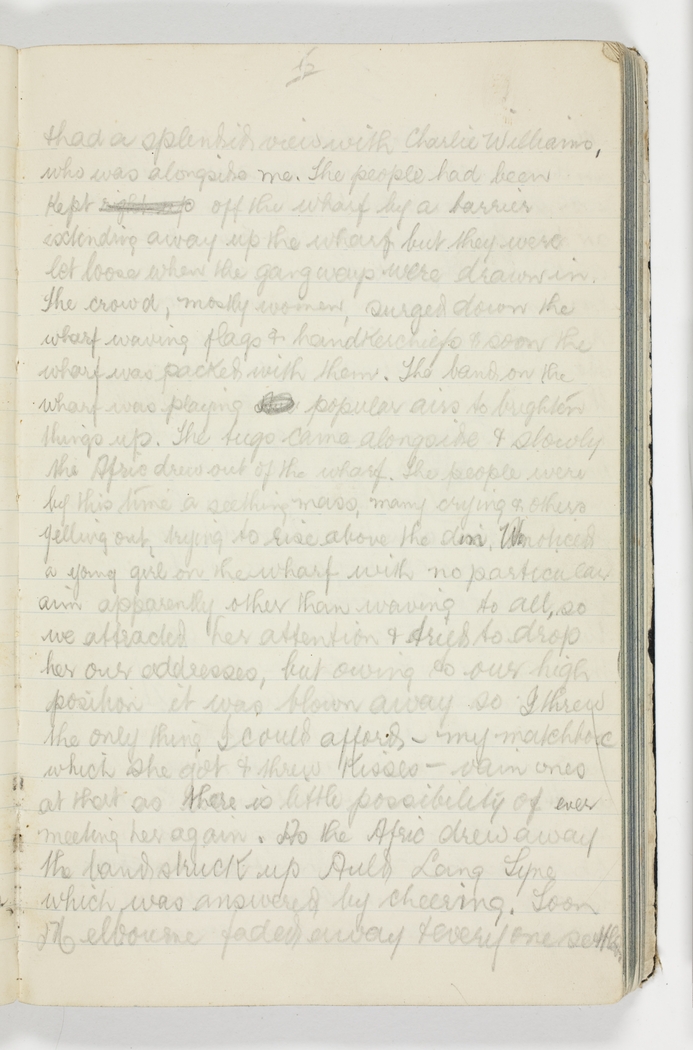 12
I had a splendid view with Charlie Williams,
who was alongside me. The people had been
kept right up off the wharf by a barrier
extending away up the wharf but they were
let loose when the gangways were drawn in.
The crowd, mostly women, surged down the
wharf waving flags & handkerchiefs & soon the
wharf was packed with them. The band on the
wharf was playing popular airs to brighten
things up. The tugs came alongside & slowly
the Afric drew out of the wharf. The people were
by this time a seething mass, many crying & others
yelling out, trying to rise above the din. We noticed
a young girl on the wharf with no particular
aim apparently other than waving to all, so
we attracted her attention & tried to drop
her our addresses, but owing to our high
position it was blown away so I threw
the only thing I could afford – my matchbox
which she got & threw kisses – vain ones
at that as there is little possibility of ever
meeting her again. As the Afric drew away
the band struck up Auld Lang Syne
which was answered by cheering. Soon
Melbourne faded away & everyone